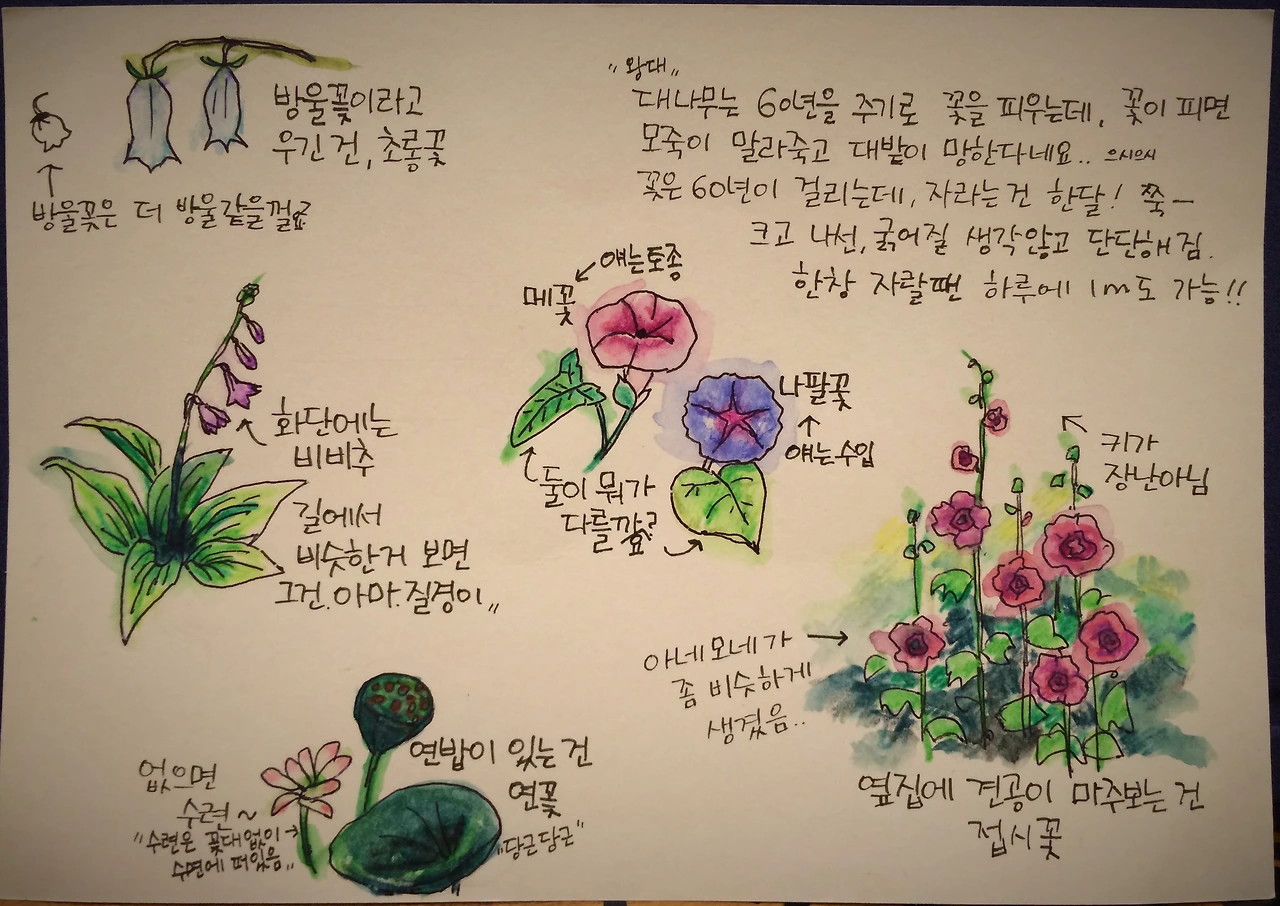 방울꽃이라고
우긴 건, 초롱꽃
방울꽃은 더 방울같을껄요?
"왕대"
대나무는 60년을 주기로 꽃을 피우는데, 꽃이 피면
모죽이 말라죽고 대밭이 망한다네요.. 으시으시
꽃은 60년이 걸리는데, 자라는건 한달! 쭉-
크고 나선, 굵어질 생각않고 단단해짐.
한창 자랄땐 하루에 1m도 가능!!
얘는토종
메꽃
나팔꽃
얘는수입
둘이 뭐가
다를까요?
화단에는
비비추
길에서
비슷한거 보면
그건.아마.질경이"
키가
장난아님
아네모네가
좀 비슷하게
생겼음..
옆집에 견공이 마주보는 건
접시꽃
연밥이 있는건
연꽃
"당근당근"
없으면
수련~
"수련은 꽃대없이
수면에 떠있음"